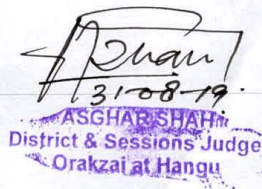 31-08-19.
ASGHAR SHAH
District & Sessions Judge
Orakzai at Hangu